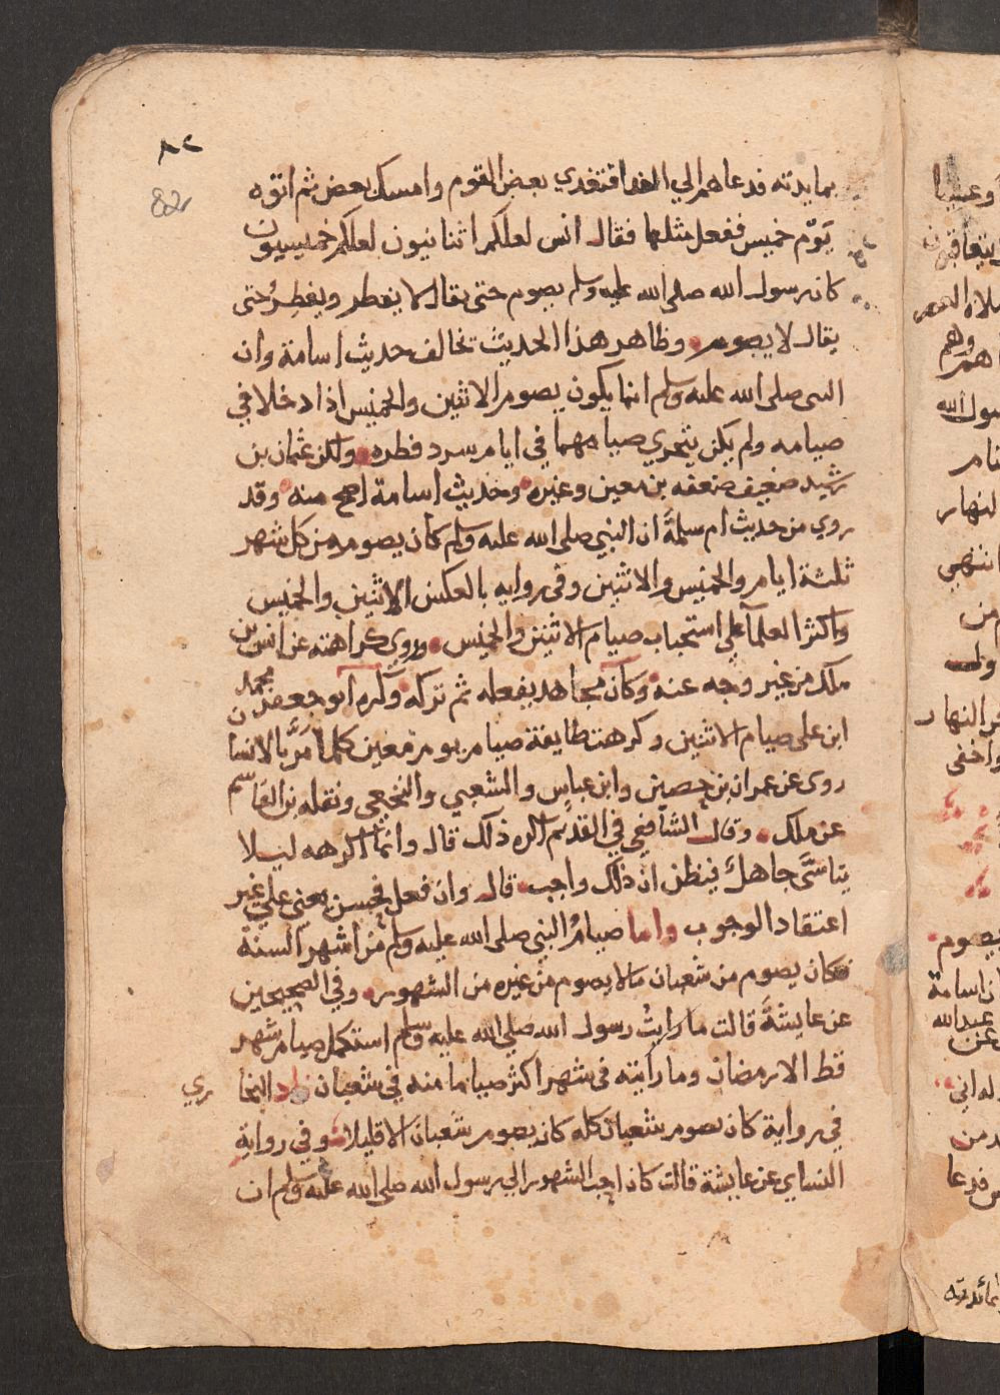 ٨٢
82
بمايدته فدعاهم الي الغدا فتغدي بعض القوم وامسك بعض ثم اتوه
يوم خميس ففعل مثلها فقال انس لعلكم اثنانيون لعلكم خميسيون
كان رسول الله صلى الله عليه وسلم يصوم حتى يقال لا يفطر ويفطر حتى
يقال لا يصوم وظاهر هذا الحديث تخالف حديث اسامة وان
النبي صلى الله عليه وسلم انما يكون يصوم الاثنين والخميس اذا دخلا في
صيامه ولم يكن يتحري صيامهما في ايام سرد فطره ولكن عثمان بن
رشيد ضعيف ضعفه بن معين وغيره وحديث اسامة اصح منه وقد
روي من حديث ام سلمة ان النبي صلى الله عليه وسلم كان يصوم من كل شهر
ثلثة ايام والخميس والاثنين وفي روايه بالعكس الاثنين والخميس
واكثر العلما علي استحباب صيام الاثنين والخميس وروي كراهته عن انس بن
ملك من غير وجه عنه وكان مجاهد يفعله ثم تركه وكره ابو جعفر محمد بن
ابن على صيام الاثنين وكرهت طايفة صيام يوم معين كلما مر بالانسا
روى عن عمران بن حصين وابن عباس والشعبي والنخعي ونقله بن القاسم
عن ملك وقال الشافعي في القديم اكره ذلك قال وانما اكرهه ليلا
يتاسى جاهل فيظن ان ذلك واجب قال وان فعل فحسن يعني علي غير
اعتقاد الوجوب واما صيام النبي صلى الله عليه وسلم من اشهر السنة
فكان يصوم من شعبان مالا يصوم من غيره من الشهور وفي الصحيحين
عن عايشة قالت ما رايت رسول الله صلى الله عليه وسلم استكمل صيام شهر
قط الا رمضان وما رأيته في شهر اكثر صياما منه في شعبان زاد البخا
ري
في رواية كان يصوم شعبان كله كان يصوم شعبان الا قليلا وفي رواية
النساي عن عايشة قالت كان احب الشهور الي رسول الله صلى الله عليه وسلم ان